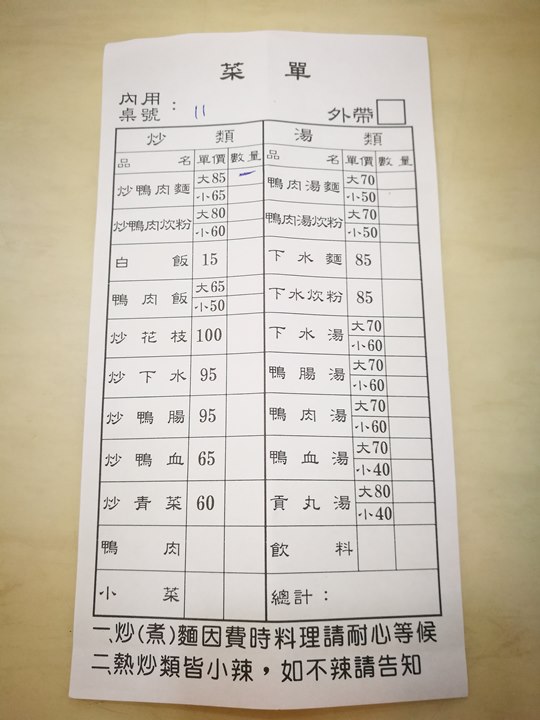 菜單
內用
桌號： 11 外帶
炒類 湯類
品名 單價 數量 品名 單價 數量
炒鴨肉麵 大85 一 鴨肉湯麵 大70
小65 小50
炒鴨肉炊粉 大80 鴨肉湯炊粉 大70
小60 小50
白飯 15 下水麵 85
鴨肉飯 大65 下水炊粉 85
小50
炒花枝 100 下水湯 大70
小60
炒下水 95 鴨腸湯 大70
小60
炒鴨腸 95 鴨肉湯 大70
小60
炒鴨血 65 鴨血湯 大70
小40
炒青菜 60 貢丸湯 大80
小40
鴨肉 飲料
小菜 總計：
一、炒(煮)麵因費時料理請耐心等候
二、熱炒類皆小辣，如不辣請告知